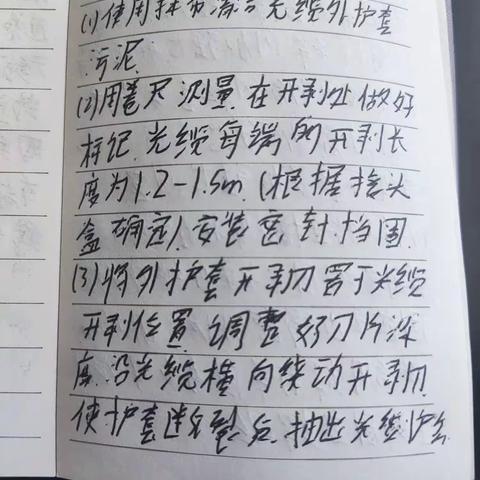 (1)使用抹布清洁光缆外护套
污泥.
(2)用卷尺测量.在开剥处做好
标记.光缆每端的开剥长
度为1.2-1.5m.(根据接头
盒确定)安装密封挡圈.
(3)将外护套开剥刀置于光缆
开剥位置.调整好刀片深
度.沿光缆横向绕动开剥刀.
使护套 后.抽出光缆护套